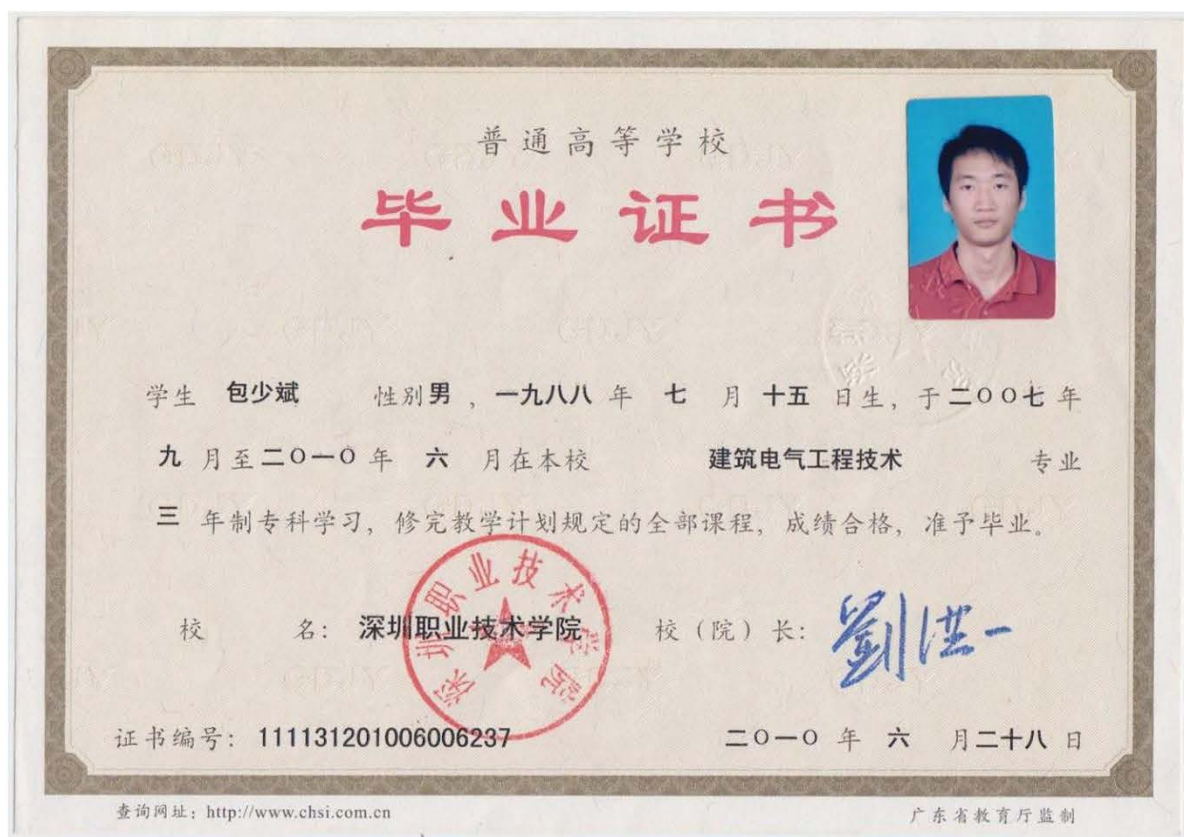 普通高等学校
毕业证书
学生 包少斌 性别男，一九八八年 七 月 十五 日生，于二〇〇七年
九 月至二〇一〇年 六 月在本校 建筑电气工程技术 专业
三 年制专科学习，修完教学计划规定的全部课程，成绩合格，准予毕业。
校 名：深圳职业技术学院 校（院）长：劉洪一
深圳职业技术学院
证书编号：111131201006006237 二〇一〇年 六 月二十八日
查询网址：http://www.chsi.com.cn 广东省教育厅监制